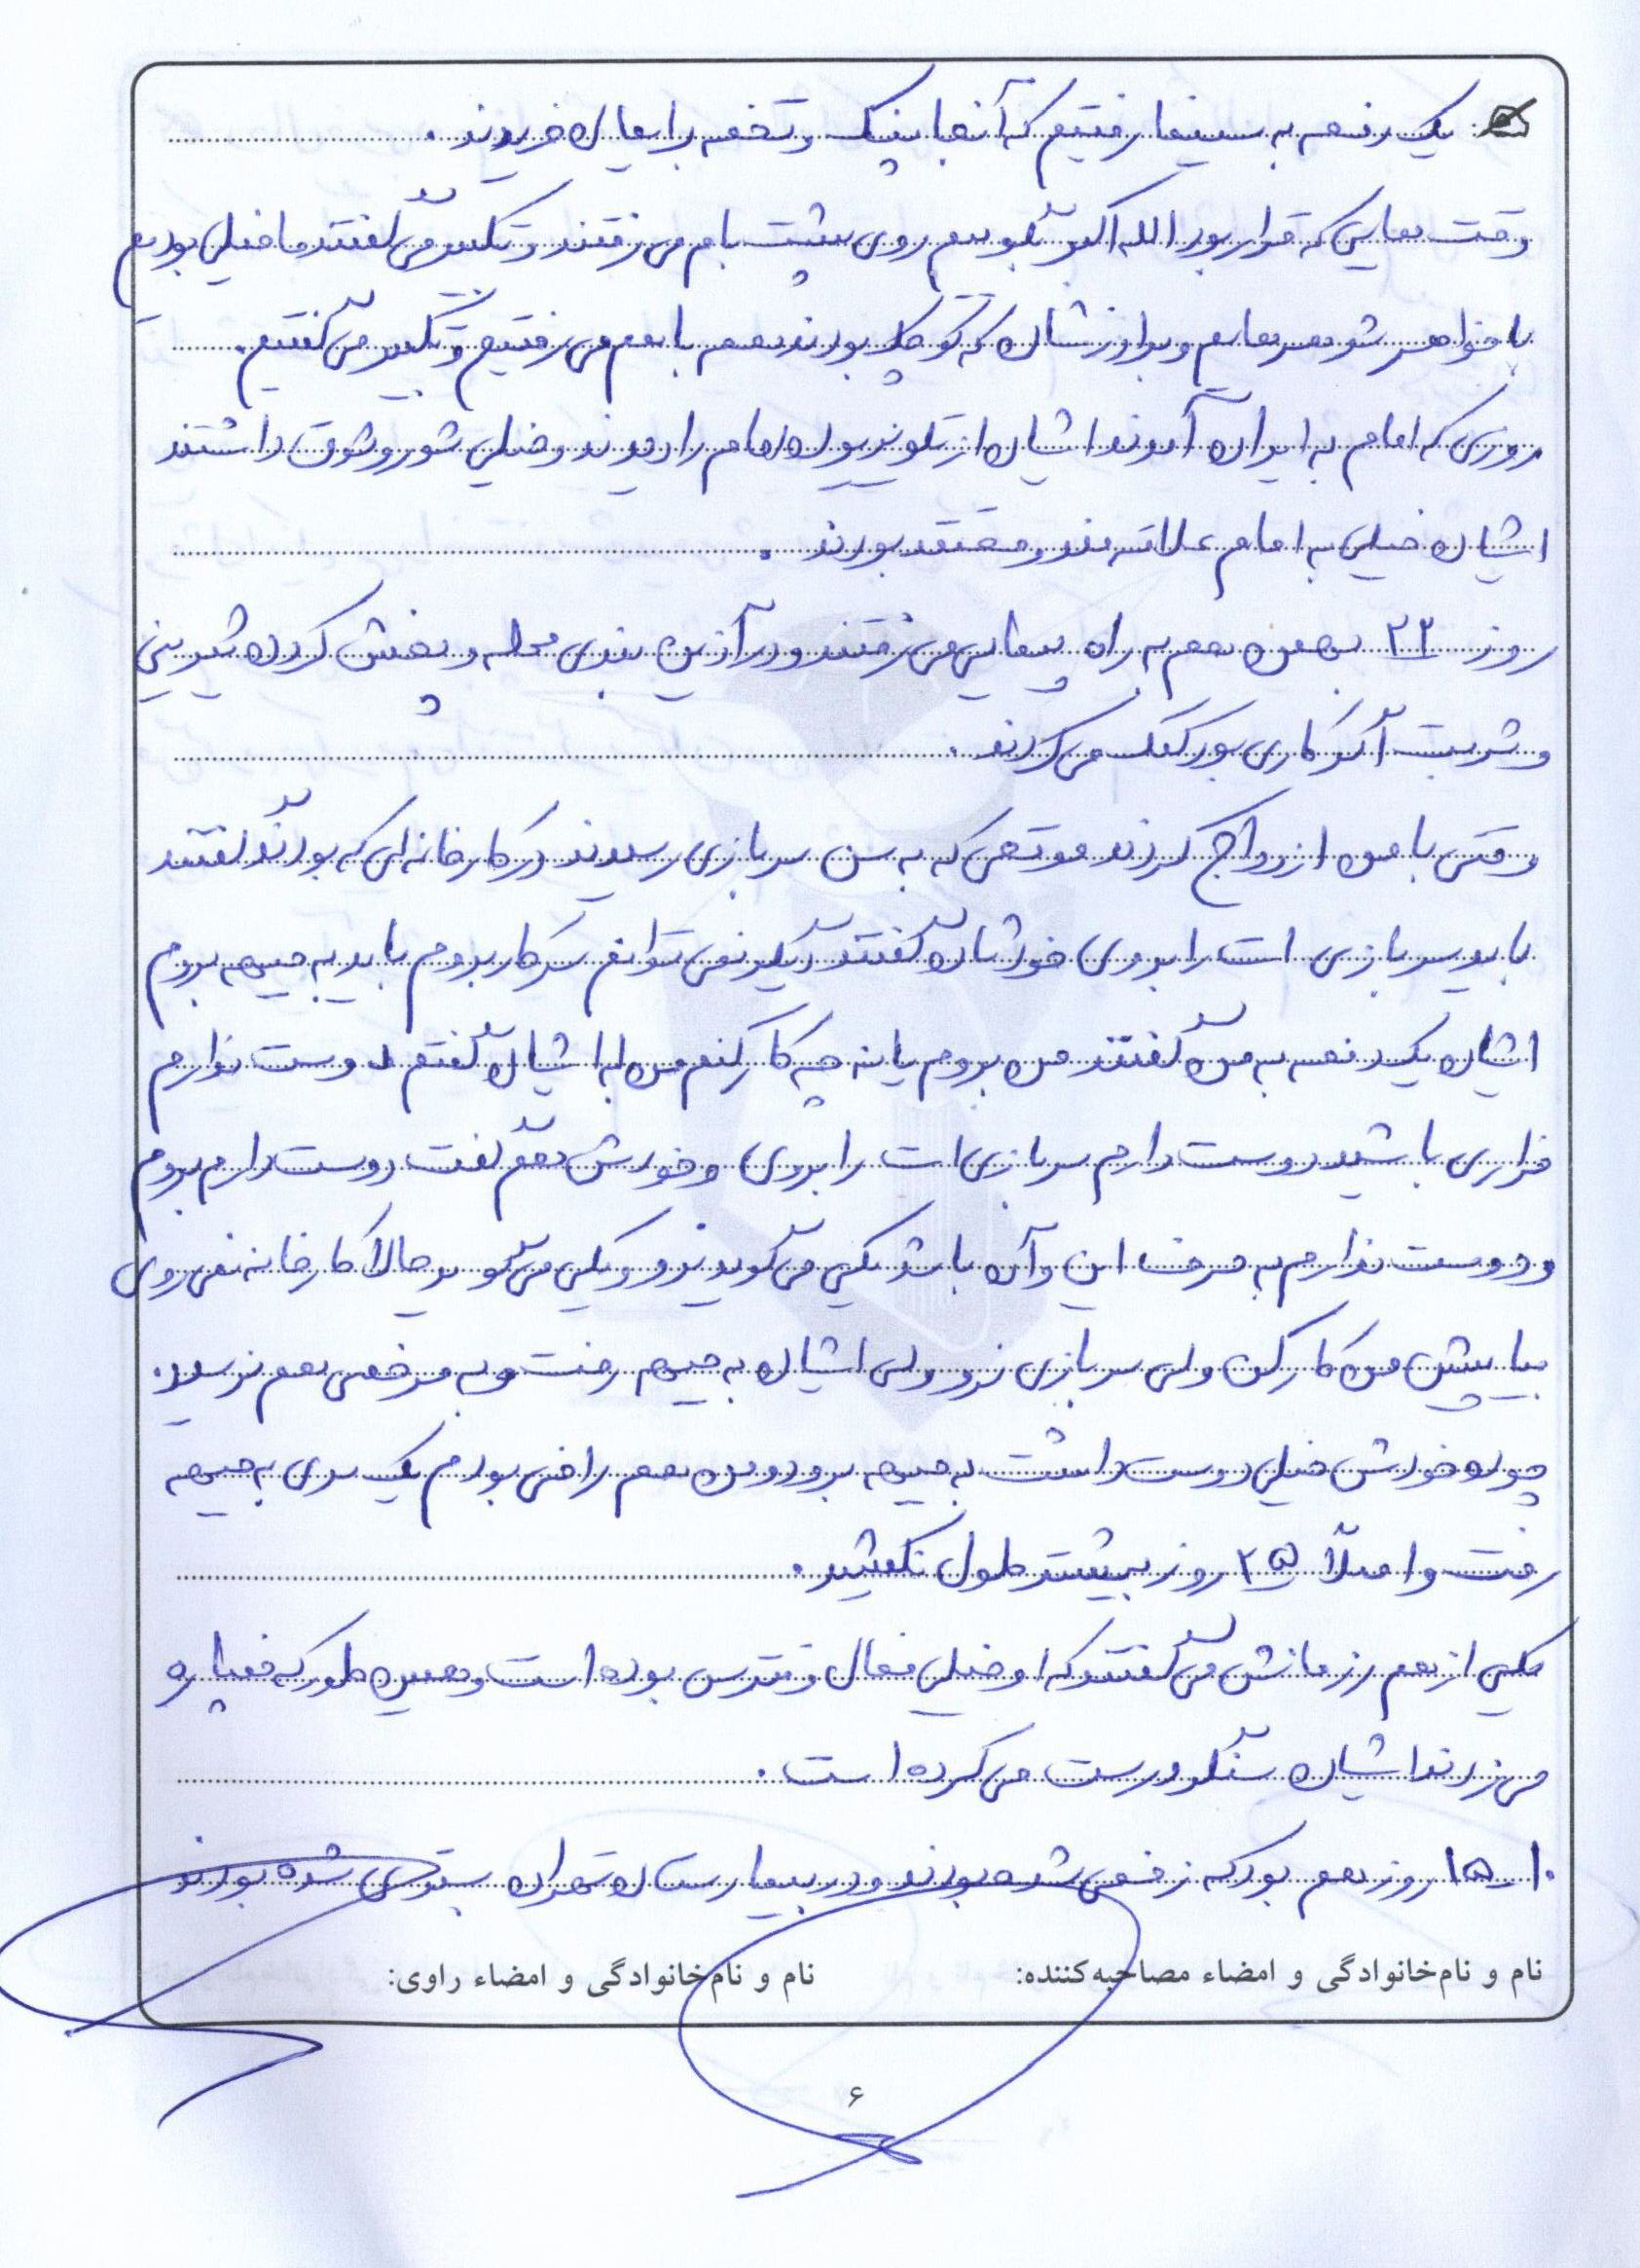 یک دفعه به سینما رفتیم که آنجا پفک و تخمه برایمان خریدند.
وقت هایی که قرار بود الله اکبر بگوییم روی پشت بام می رفتند و تکبیر می گفتند ما خیلی بودیم
با خواهر شوهرهایم و برادرشان که کوچک بودند همه با هم می رفتیم و تکبیر می گفتیم.
روزی که امام به ایران آمدند ایشان از تلویزیون امام را دیدند و خیلی شور و شوق داشتند
ایشان خیلی به امام علاقه مند و معتقد بودند.
روز ۲۲ بهمن هم به راه پیمایی می رفتند و در آذین بندی محله و پخش کردن شیرینی
و شربت اگر کاری بود کمک می کردند.
وقتی با من ازدواج کردند موقعی که به سن سربازی رسیدند در کارخانه ای که بودند گفتند
باید سربازی ات را بروی خودشان گفتند دیگر نمی توانم سر کار بروم باید به جبهه بروم
ایشان یک دفعه به من گفتند من بروم یا نه چه کار کنم من به ایشان گفتم دوست ندارم
فراری باشید دوست دارم سربازی ات را بروی و خودش هم گفت دوست دارم بروم
و دوست ندارم به حرف این و آن باشد یکی می گوید نرو و یکی می گوید حالا کارخانه نمی روی
بیا پیش من کار کن ولی سربازی نرو ولی ایشان به جبهه رفت و به مرخصی هم نرسید.
چون خودش خیلی دوست داشت به جبهه برود و من هم راضی بودم یک سری به جبهه
رفت و اصلاً ۲۵ روز بیشتر طول نکشید.
یکی از هم رزمانش می گفتند که او خیلی فعال و نترس بوده است و همین طور که خمپاره
می زدند ایشان سنگر درست می کرده است.
۱۰ ـ ۱۵ روز هم بود که زخمی شده بودند و در بیمارستان تهران بستری شده بودند
نام و نام خانوادگی و امضاء مصاحبه کننده: نام و نام خانوادگی و امضاء راوی:
۶